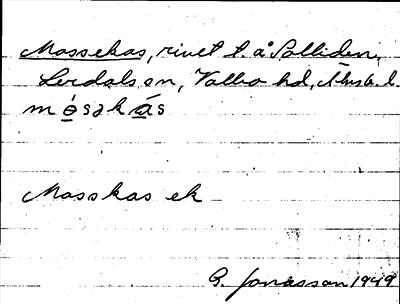 Massekas, rivet t. å Solliden,
Lerdals sn, Valbo hd, Älvsb. l.
mo̱sək a̱s
Masskas ek
G. Jonasson 1949